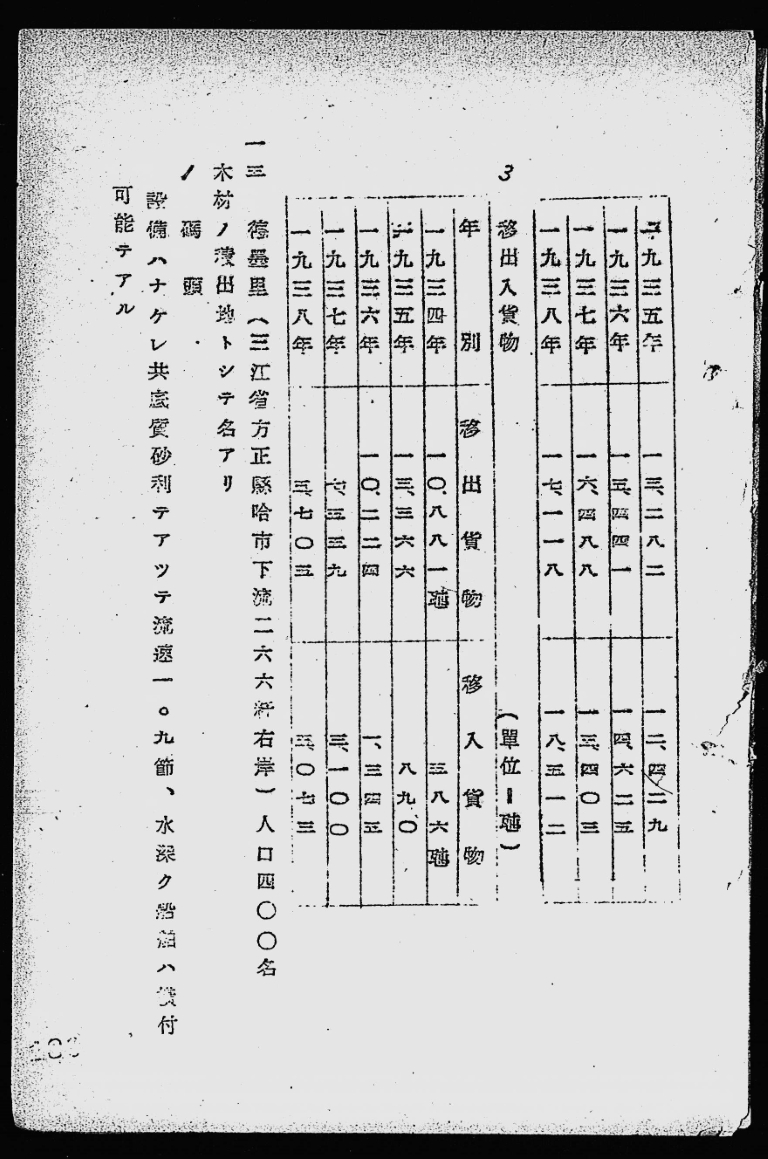 一九三五年 一三、二八二 一二、四二九
一九三六年 一五、四四一 一四、六二五
一九三七年 一六、四八八 一三、四〇三
一九三八年 一七、一一八 一八、五一二
3 移出入貨物 (單位ー瓲)
年別 移出貨物 移入貨物
一九三四年 一〇、八八一瓲 三八六瓲
一九三五年 一三、三六六 八九〇
一九三六年 一〇、二二四 一、三四五
一九三七年 七、三三九 三、一〇〇
一九三八年 三、七〇五 五、〇七三
一三 德墨里(三江省方正縣哈市下流二六六粁右岸)人口四〇〇名
木材ノ積出地トシテ名アリ
ノ 碼頭
設備ハナケレ共底質砂利テアツテ流速一。九節、水深ク船舶ハ横付
可能テアル